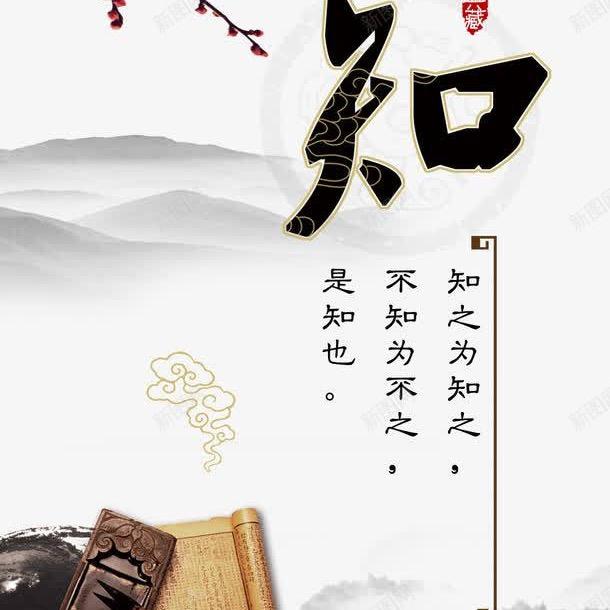 知
藏
知之为知之，
不知为不之，
是知也。